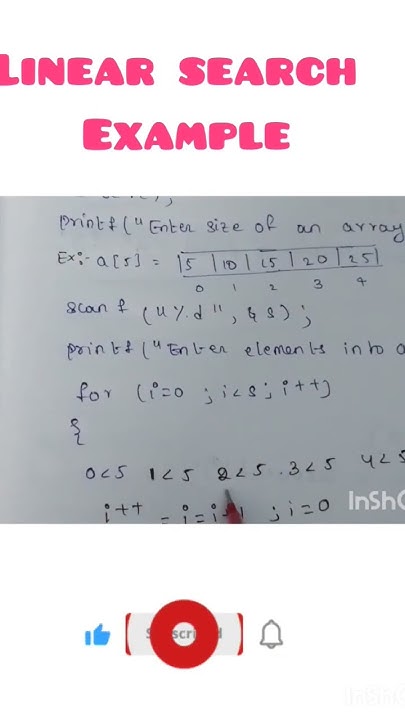 LINEAR SEARCH
EXAMPLE
printf("Enter size of an array
Ex:- a[5] = 5 | 10 | 15 | 20 | 25
0 1 2 3 4
scanf ("%d", &s);
printf("Enter elements into a
for (i=0 ; i<s; i++)
{
0<5 1<5 2<5 .3<5 4<5
i++ - i=i+1 ; i=0
InShO
InSho